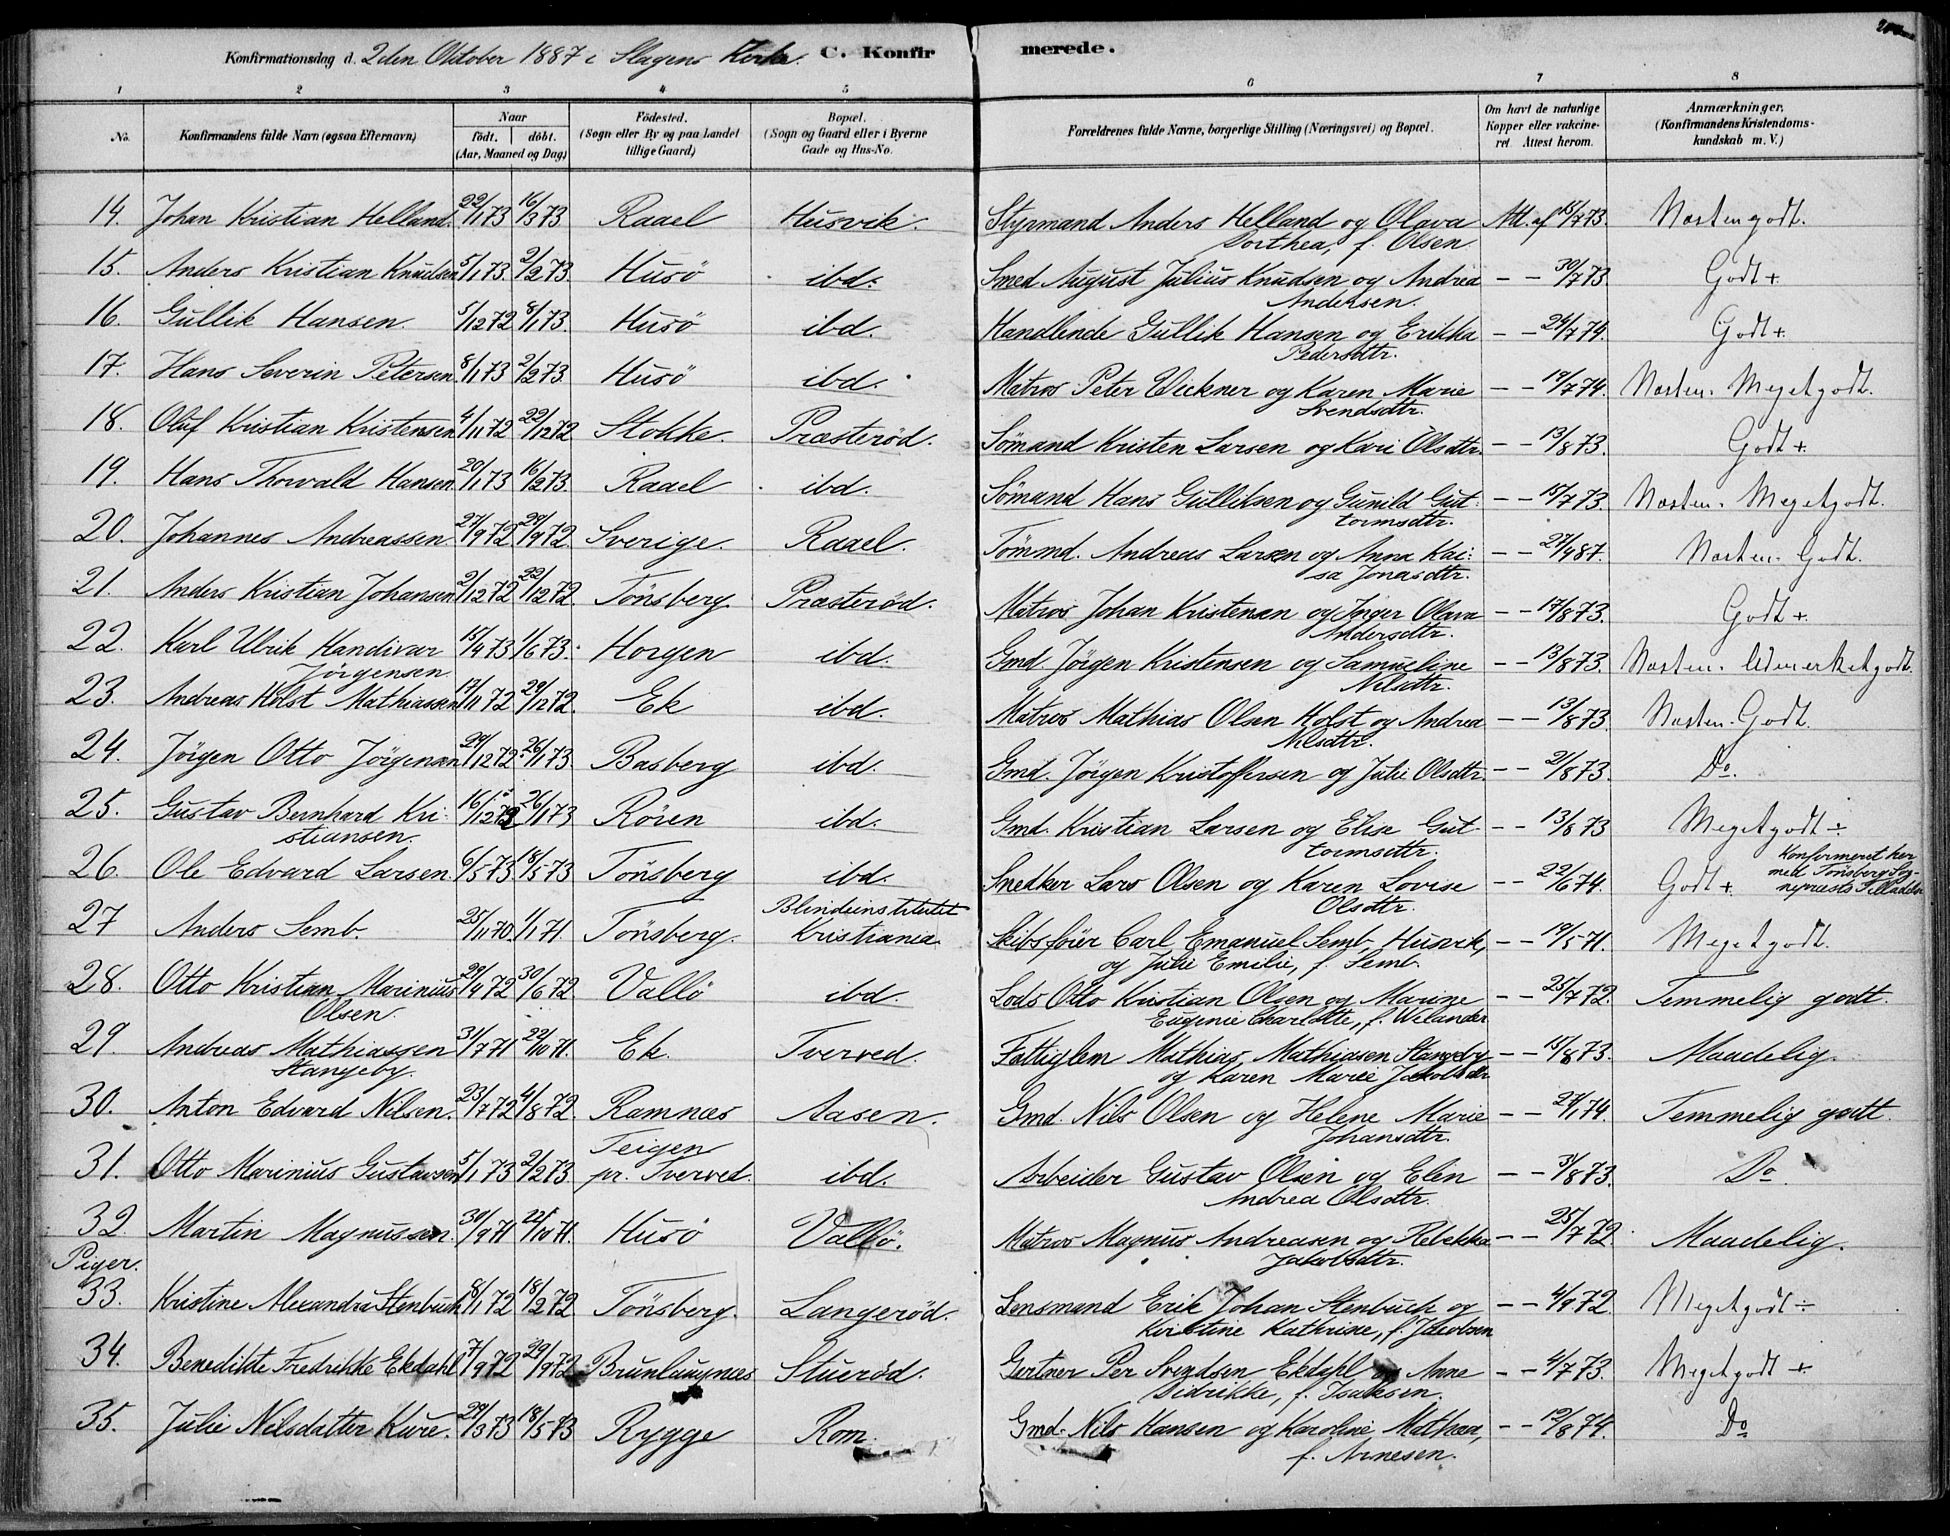 Konfirmationsdag d. 2den Oktober 1887 i Slagens Kirke. C. Konfirmerede.
1 2 3 4 5 6 7 8
No. Konfirmandens fulde Navn (ogsaa Efternavn) Naar födt. döbt. (Aar, Maaned og Dag) Födested. (Sogn eller By og paa Landet tillige Gaard) Bopæl. (Sogn og Gaard eller i Byerne Gade og Hus-No. Forældrenes fulde Navne, borgerlige Stilling (Næringsvei) og Bopæl. Om havt de naturlige Kopper eller vakcineret. Attest herom. Anmærkninger, (Konfirmandens Kristendomskundskab m. V.)
14. Johan Kristian Helland. 22/1 73 16/3 73 Raael Husvik. Styrmand Anders Helland og Olava Att. af 15/7 73. Næsten godt.
Dorthea, f. Olsen
15. Anders Kristian Knudsen 5/1 73. 2/2 73. Husö ibd. Smed August Julius Knudsen og Andrea — — 30/7 73. Godt +
Andersen.
16. Gullik Hansen. 5/12 72 8/1 73. Husö ibd. Handlende Gullik Hansen og Erikka — — 24/7 74. Godt +
Pedersdtr.
17. Hans Severin Petersen. 8/1 73 2/2 73. Husö ibd. Matros Peter Wickner og Karen Marie — — 19/7 74. Næsten Megetgodt.
Svendsdtr.
18. Oluf Kristian Kristensen 4/11 72 22/12 72 Stokke. Præsterød. Sömand Kristen Larsen og Kari Olsdtr. — — 13/8 73. Godt +
19. Hans Thorvald Hansen. 20/1 73 16/2 73. Raael ibd. Sömand Hans Gulliksen og Gunild Gut- — — 15/7 73. Næsten Megetgodt.
tormsdtr.
20. Johannes Andreassen 27/9 72 29/9 72. Sverige. Raael. Tömmd. Andreas Larsen og Anna Kai- — — 27/4 87. Næsten Godt.
sa Jonasdtr.
21. Anders Kristian Johansen 2/12 72 22/12 72. Tönsberg. Præsterød. Matros Johan Kristensen og Inger Olava — — 17/8 73. Godt +
Andersdtr.
22. Karl Ulrik Handivar 15/4 73 1/6 73. Horgen ibd. Gmd. Jörgen Kristensen og Samueline — — 13/8 73. Næsten Udmerketgodt.
Jörgensen Nilsdtr.
23. Andreas Holst Mathiassen 17/11 72 29/12 72. Ek ibd. Matros Mathias Olsen Holst og Andrea — — 13/8 73. Næsten Godt.
Nilsdtr.
24. Jörgen Otto Jörgensen 29/12 72. 26/1 73. Basberg ibd. Gmd. Jörgen Kristoffersen og Julie Olsdtr. — — 21/8 73. Do.
25. Gustav Bernhard Kri- 16/12 72 26/1 73 Rören ibd. Gmd. Kristian Larsen og Elise Gut- — — 13/8 73 Megetgodt ÷
stiansen. tormsdtr.
26. Ole Edvard Larsen. 6/5 73. 18/5 73 Tönsberg ibd. Snedker Lars Olsen og Karen Lovise — — 22/6 74. Godt + Konfirmeret her med Tönsberg Sognepræsts Tilladelse
Olsdtr.
27 Anders Semb. 25/11 70. 1/1 71. Tönsberg. Blindeinstitutet Kristiania. Skibsförer Carl Emanuel Semb, Husvik, — — 19/5 71. Megetgodt.
og Julie Emilie, f. Semb.
28. Otto Kristian Marinius 29/4 72 30/6 72 Vallö ibd. Lods Otto Kristian Olsen og Marine — — 25/7 72. Temmelig godt.
Olsen. Eugenie Charlotte, f. Welander
29. Andreas Mathiassen 31/7 71 22/10 71. Ek. Tverved. Fattiglem Mathias Mathiasen Stangeby — — 15/8 73. Maadelig.
Stangeby. og Karen Marie Jakobsdtr
30. Anton Edvard Nilsen. 23/7 72 4/8 72. Ramnæs Aasen. Gmd. Nils Olsen og Helene Marie — — 27/1 74. Temmelig godt.
Johansdtr.
31. Otto Marinius Gustavsen 5/1 73 2/2 73 Teigen pr. Tverved. ibd. Arbeider Gustav Olsen og Elen — — 31/8 73. Do.
Andrea Olsdtr.
32. Martin Magnussen. 30/9 71 22/10 71. Husö Vallö. Matros Magnus Andreasen og Rebekka — — 25/7 72. Maadelig.
Jakobsdtr.
Piger.
33. Kristine Alexandra Stenbuch 8/1 72 18/2 72 Tönsberg. Langerød. Lensmand Erik Johan Stenbuch og — — 4/9 72 Megetgodt ÷
Kristine Kathrine, f. Jacobsen
34. Benedikte Fredrikke Ekdahl 17/9 72 29/9 72 Brunlaugnæs Stuerød. Gertner Per Svendsen Ekdahl og Anne — — 4/7 73. Megetgodt +
Didrikke, f. Isaksen.
35. Julie Nilsdatter Kure. 29/3 73 18/5 73 Rygge Rom. Gmd. Nils Hansen og Karoline Mathea, — — 12/8 74. Do
f. Arnesen.